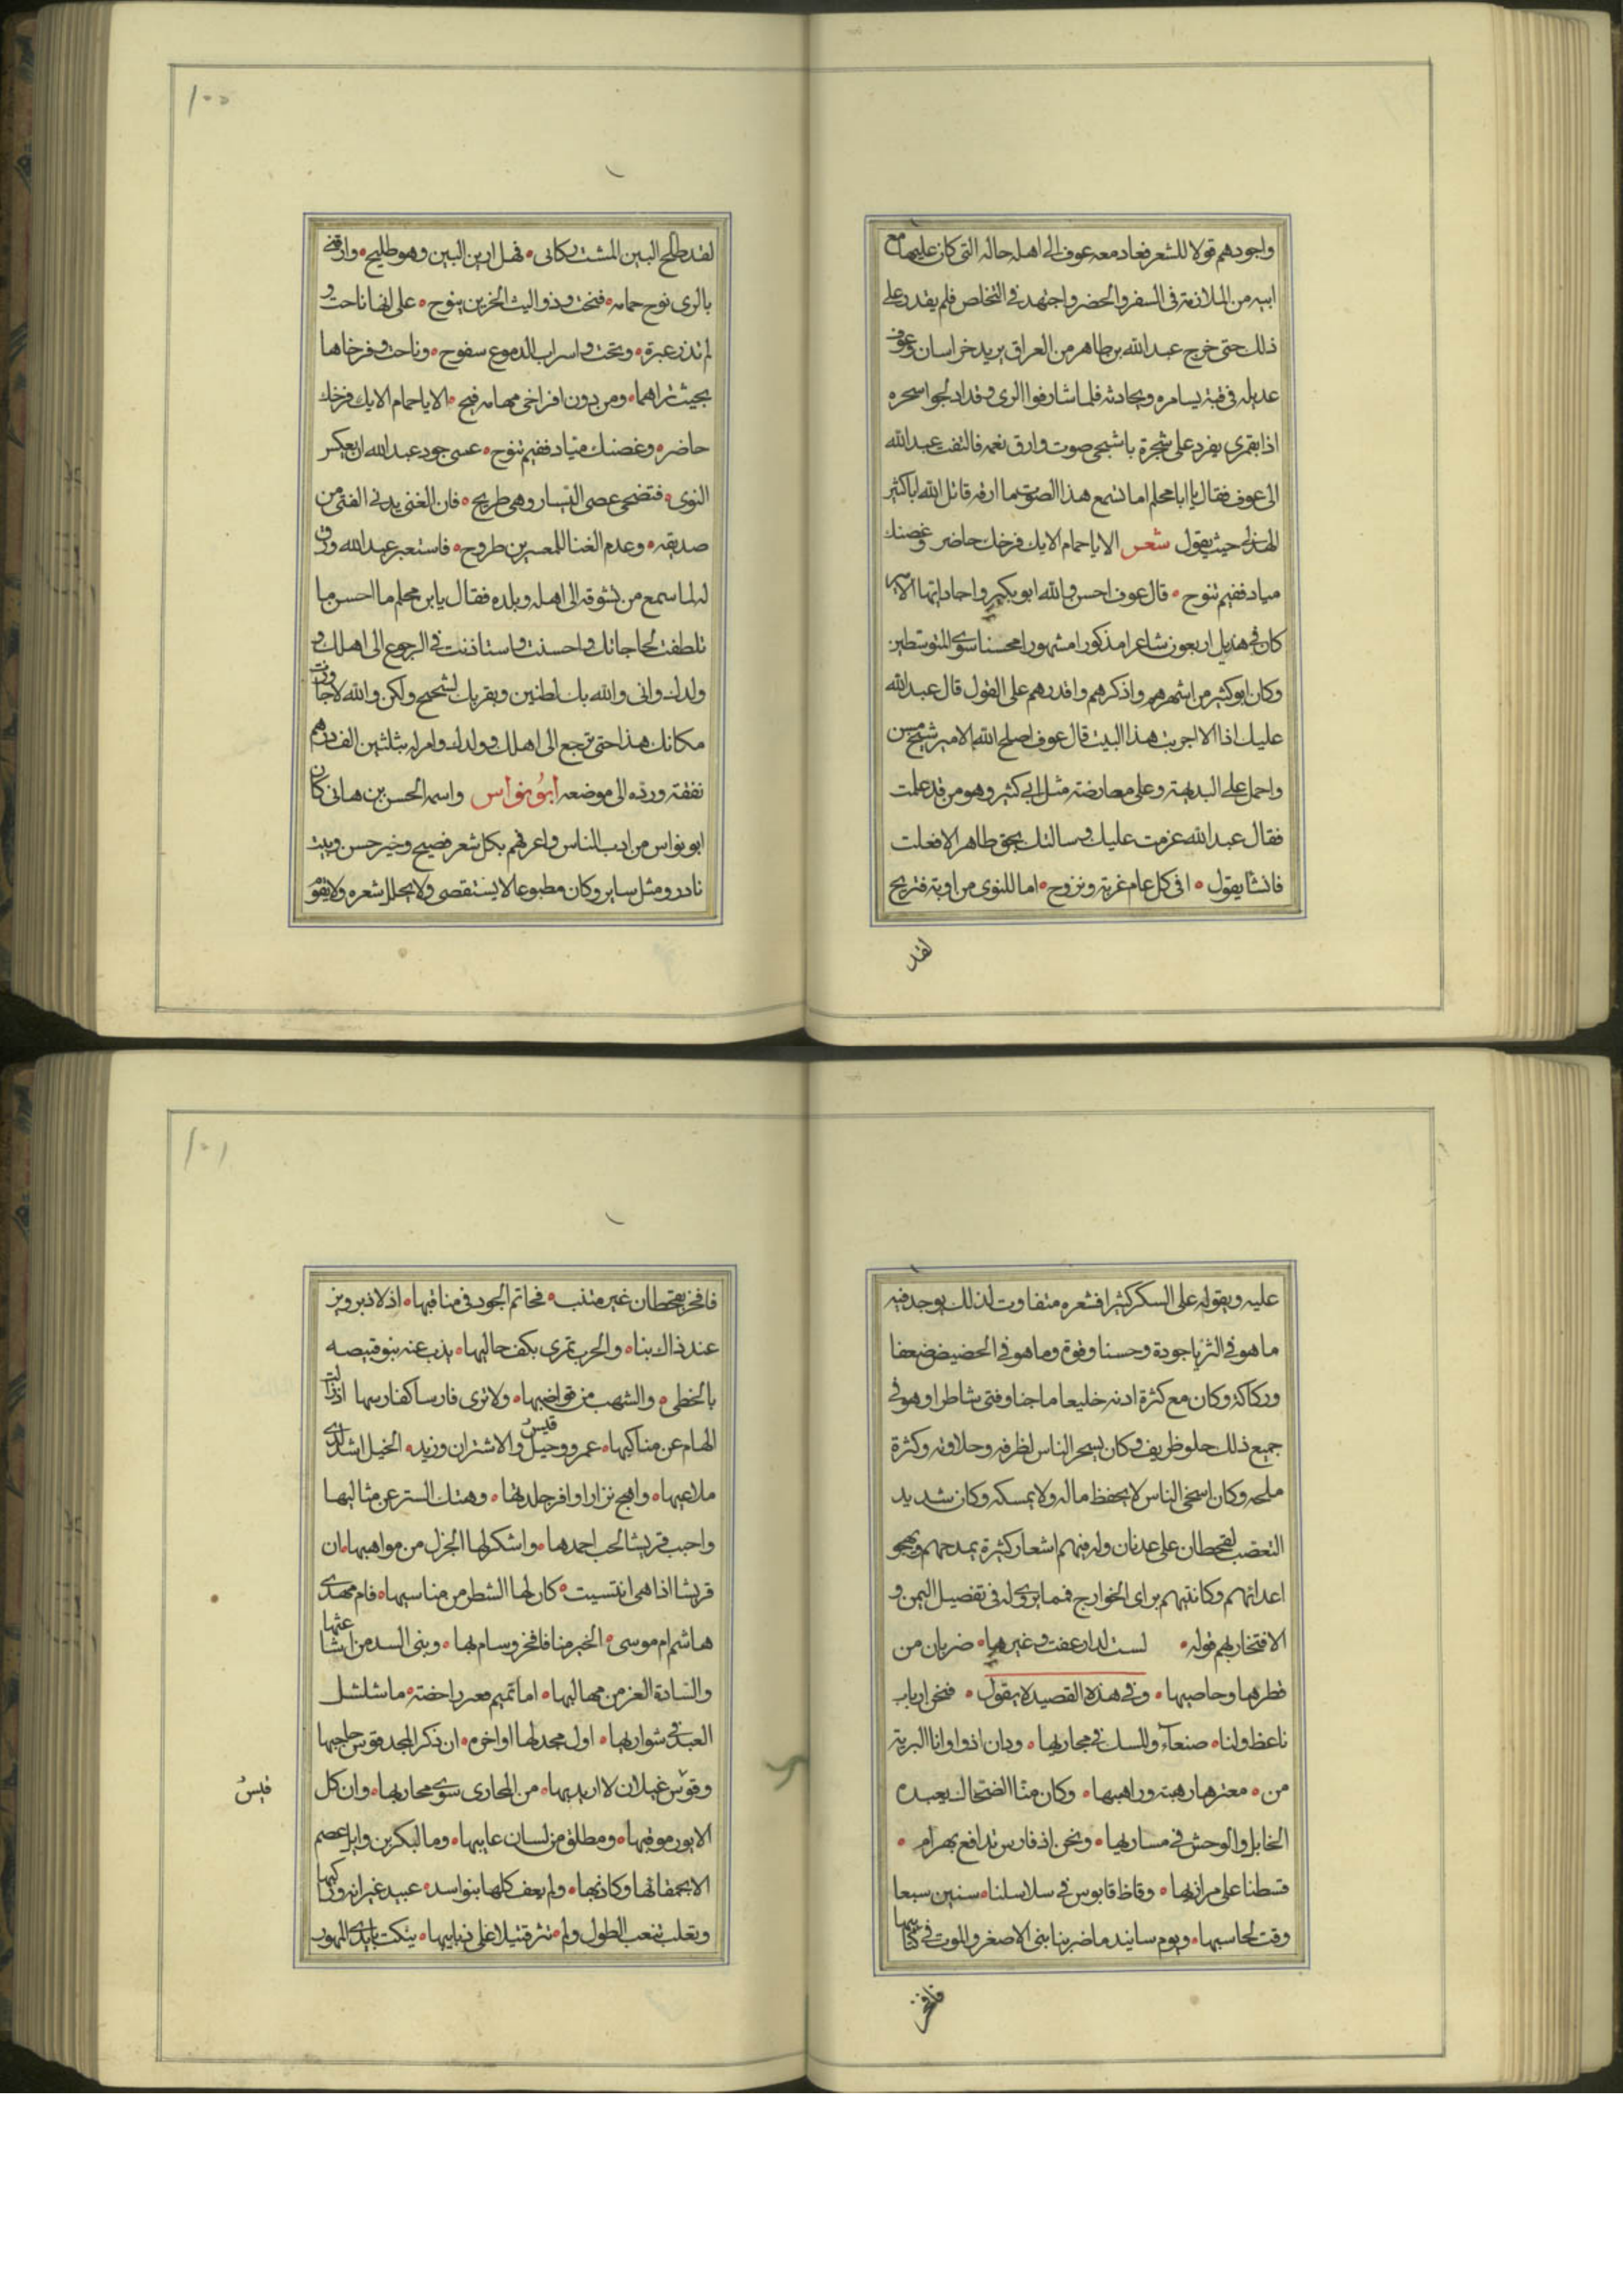 واجودهم قولا للشعر فعاد معه عوف الى اهله حاله التى كان عليها مع
ابيه من الملازمة فى السفر والحضر واجتهد فى التخلص فلم يقدر على
ذلك حتى خرج عبد الله بن طاهر من العراق يريد خراسان وعوف
عديله فى قبة يسامره ويحادثه فلما شارفوا الرى وقد ادلجوا سحره
اذا بقمرى يغرد على شجرة باشجى صوت وارق نغمه فالتفت عبد الله
الى عوف فقال يا ابا محلم اما تسمع هذا الصوت ما ارقه قاتل الله ابا كثير
الهذلى حيث يقول شعر الا يا حمام الايك فرخك حاضر وغصنك
مياد ففيم تنوح قال عوف احسن والله ابو بكير واجاد ايها الامير
كان فى هذيل اربعون شاعرا مذكورا مشهورا محسنا سوى المتوسطين
وكان ابو كثير من اشهرهم واذكرهم واقدرهم على القول قال عبد الله
عليك اذا الا اجريت هذا البيت قال عوف اصلح الله الامير شيخ مسن
واحمل على البديهة وعلى معارضة مثل ابى كثير وهو من قد علمت
فقال عبد الله عزمت عليك وسالتك بحق طاهر الا فعلت
فانشا يقول افى كل عام غربة ونزوح اما للنوى من اوبة فتريح
لقد
١٠٠
لقد طلح البين المشت ركائبى فهل ارين البين وهو طليح وارقنى
بالرى نوح حمامه فنحت وذو البث الحزين ينوح على انها ناحت و
لم تذر عبرة ونحت واسراب الدموع سفوح وناحت وفرخاها
بحيث تراهما ومن دون افراخى مهامه فيح الا يا حمام الايك فرخك
حاضر وغصنك مياد ففيم تنوح عسى جود عبد الله ان يعكس
النوى فتضحى عصى التسيار وهى طريح فان الغنى يدنى الفتى من
صديقه وعدم الغنا للمعسرين طروح فاستعبر عبد الله ورق
له لما سمع من تشوقه الى اهله وبلده فقال يا بن محلم ما احسن ما
تلطفت لحاجاتك واحسنت واستاذنت فى الرجوع الى اهلك و
ولدك وانى والله بك لطنين وبقربك لشحيح ولكن والله لا جاوزت
مكانك هذا حتى ترجع الى اهلك وولدك وامر له بثلثين الف درهم
نفقة ورده الى موضعه ابو نواس واسمه الحسن بن هانى كان
ابو نواس من ادب الناس واعرفهم بكل شعر فصيح وخبر حسن وبيت
نادر ومثل ساير وكان مطبوعا لا يستقصى ولا يحلل شعره ولا يقوم
عليه ويقوله على السكر كثيرا فشعره متفاوت لذلك يوجد فيه
ما هو فى الثريا جودة وحسنا وقوة وما هو فى الحضيض ضعفا
وركاكة وكان مع كثرة ادبه خليعا ماجنا وفتى شاطرا وهو فى
جميع ذلك حلو ظريف وكان يسحر الناس لظرفه وحلاوته وكثرة
ملحه وكان اسخى الناس لا يحفظ ماله ولا يمسكه وكان شديد
التعصب لقحطان على عدنان وله فيهم اشعار كثيرة يمدحهم ويهجو
اعدائهم وكان يتهم براى الخوارج فمما يروى له فى تفضيل اليمن و
الافتخار بهم قوله لست لدار عفت وغيرها ضربان من
قطرها وحاصبها وفى هذه القصيدة يقول فنحن ارباب
ناعظ ولنا صنعاء والمسك فى محاربها ودان اذواوانا البرية
من معترها رهبة وراهبها وكان منا الضحاك يعبده
الخابل والوحش فى مساربها ونحن اذ فارس تدافع بهرام
قسطنا على مرازبها وقاظ قابوس فى سلاسلنا سنين سبعا
وفت لحاسبها ويوم سانيدما ضربنا بنى الاصفر والموت فى كتائبها
فافخر
١٠١
فافخر بقحطان غير متئب فحاتم الجود فى مناقبها اذ لاذ برويز
عند ذاك بنا والحرب تمرى بكف حالبها يذب عنه بنو قبيصه
بالخطى والشهب من قواضبها ولا ترى فارسا كفارسها اذ زالت
الهام عن مناكبها عمرو وقيس وحيل والاشتران وزيد الخيل اسد لدى
ملاعبها واهج نزارا وافر جلدتها وهتك الستر عن مثالبها
واحبب قريشا لحب احمدها واشكر لها الجزل من مواهبها ان
قريشا اذا هى انتسبت كان لها الشطر من مناسبها فام مهدى
هاشم ام موسى الخير منا فافخر وسام بها وبنى السد من اشاعثها
والسادة الغر من مهالبها اما تميم فغير راحضة ما شلشل
العبد فى شواربها اول مجد لها واخره ان ذكر المجد قوس حاجبها
وقوس غيلان لا اريد بها من المخازى سوى محاربها وان كل
قيس
الايور موقبها ومطلق من لسان عايبها وما لبكر بن وايل عصم
الا بحمقائها وكاذبها ولم يعف كلبها بنو اسد عبيد غيرانه وراكبها
وتغلب تندب الطلول ولم تثر قتيلا على ذنايبها ينكت بايدى المهور